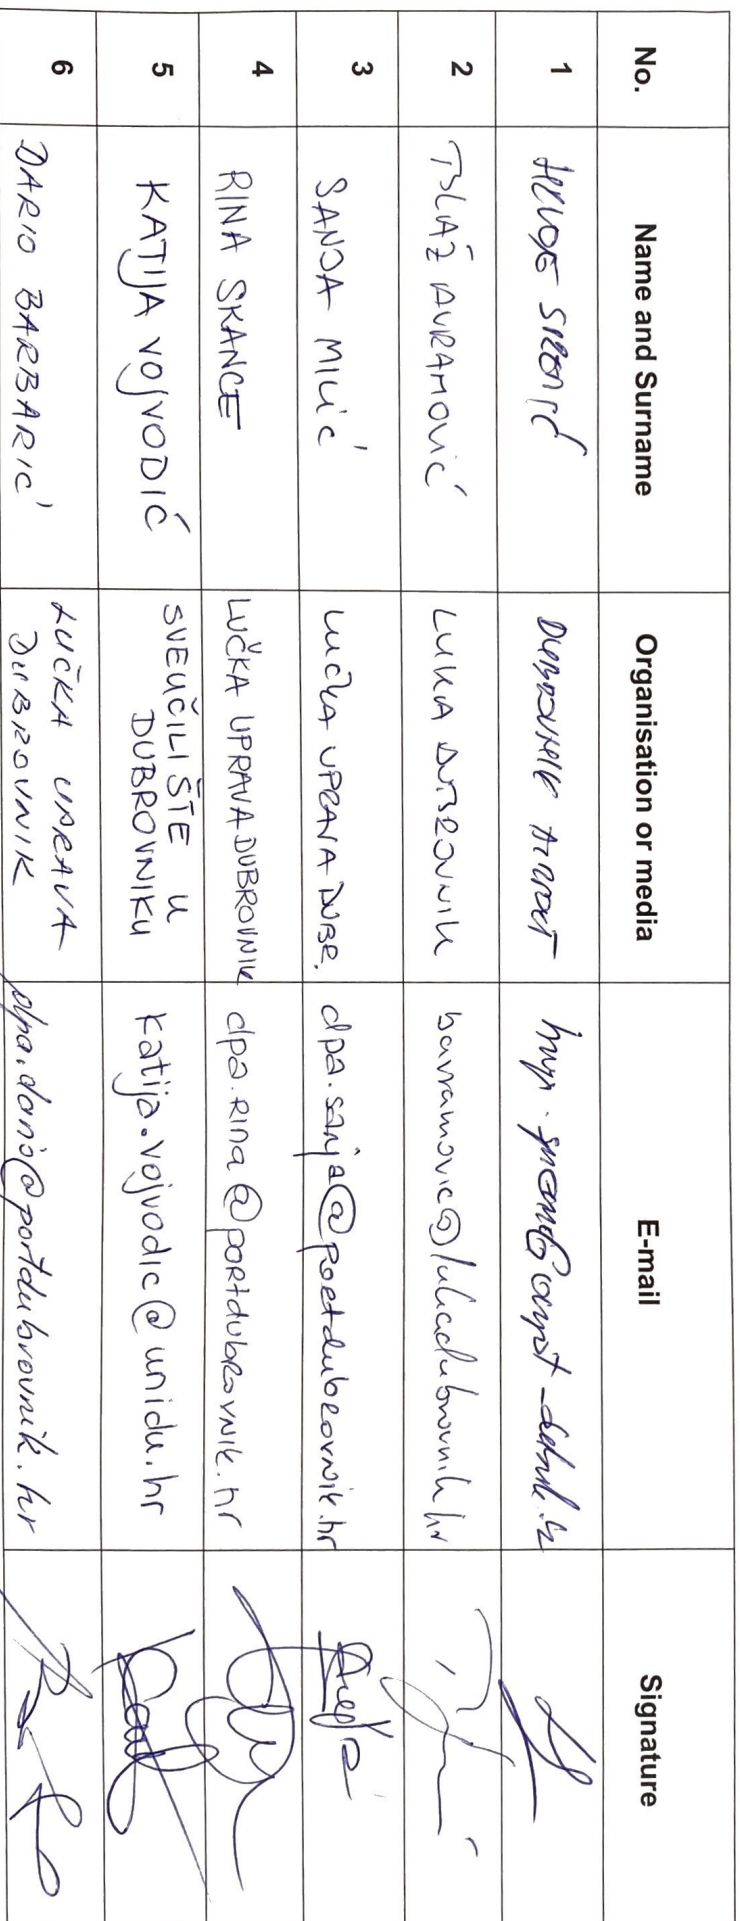 No. Name and Surname Organisation or media E-mail Signature
1 DUBROVNIK AIRPORT
2 BLAŽ AVRAMOVIĆ LUKA DUBROVNIK bavramovic@lukadubrovnik.hr
3 SANJA MILIĆ LUČKA UPRAVA DUBR. dpa.sanja@portdubrovnik.hr
4 RINA SKANCE LUČKA UPRAVA DUBROVNIK dpa.rina@portdubrovnik.hr
5 KATIJA VOJVODIĆ SVEUČILIŠTE U
DUBROVNIKU katija.vojvodic@unidu.hr
6 DARIO BARBARIĆ LUČKA UPRAVA
DUBROVNIK dpa.dario@portdubrovnik.hr